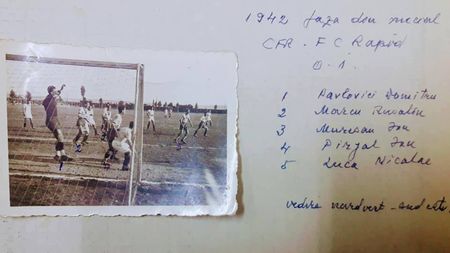 1942 faza din meciul
CFR - FC Rapid
0-1
1 Pavlovici Dumitru
2 Marcu
3 Muresan Ion
4 Pirjol Ion
5 Luca Nicolae
vedere nord vest -